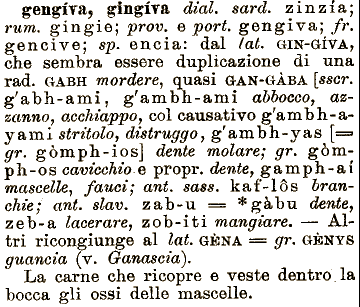 gengíva, gingíva dial. sard. zinzía;
rum. gingie; prov. e port. gengiva; fr.
gencive; sp. encia: dal lat. GIN-GÍVA,
che sembra essere duplicazione di una
rad. GABH mordere, quasi GAN-GÀBA [sscr.
g'abh-ami, g'ambh-ami abbocco, az-
zanno, acchiappo, col causativo g'ambh-a-
yami stritolo, distruggo, g'ambh-yas [=
gr. gòmph-ios] dente molare; gr. gòm-
ph-os cavicchio e propr. dente, gamph-aí
mascelle, fauci; ant. sass. kaf-lôs bran-
chie; ant. slav. zab-u = *gàbu dente,
zeb-a lacerare, zob-iti mangiare. — Al-
tri ricongiunge al lat. GÈNA = gr. GÈNYS
guancia (v. Ganascia).
La carne che ricopre e veste dentro la
bocca gli ossi delle mascelle.